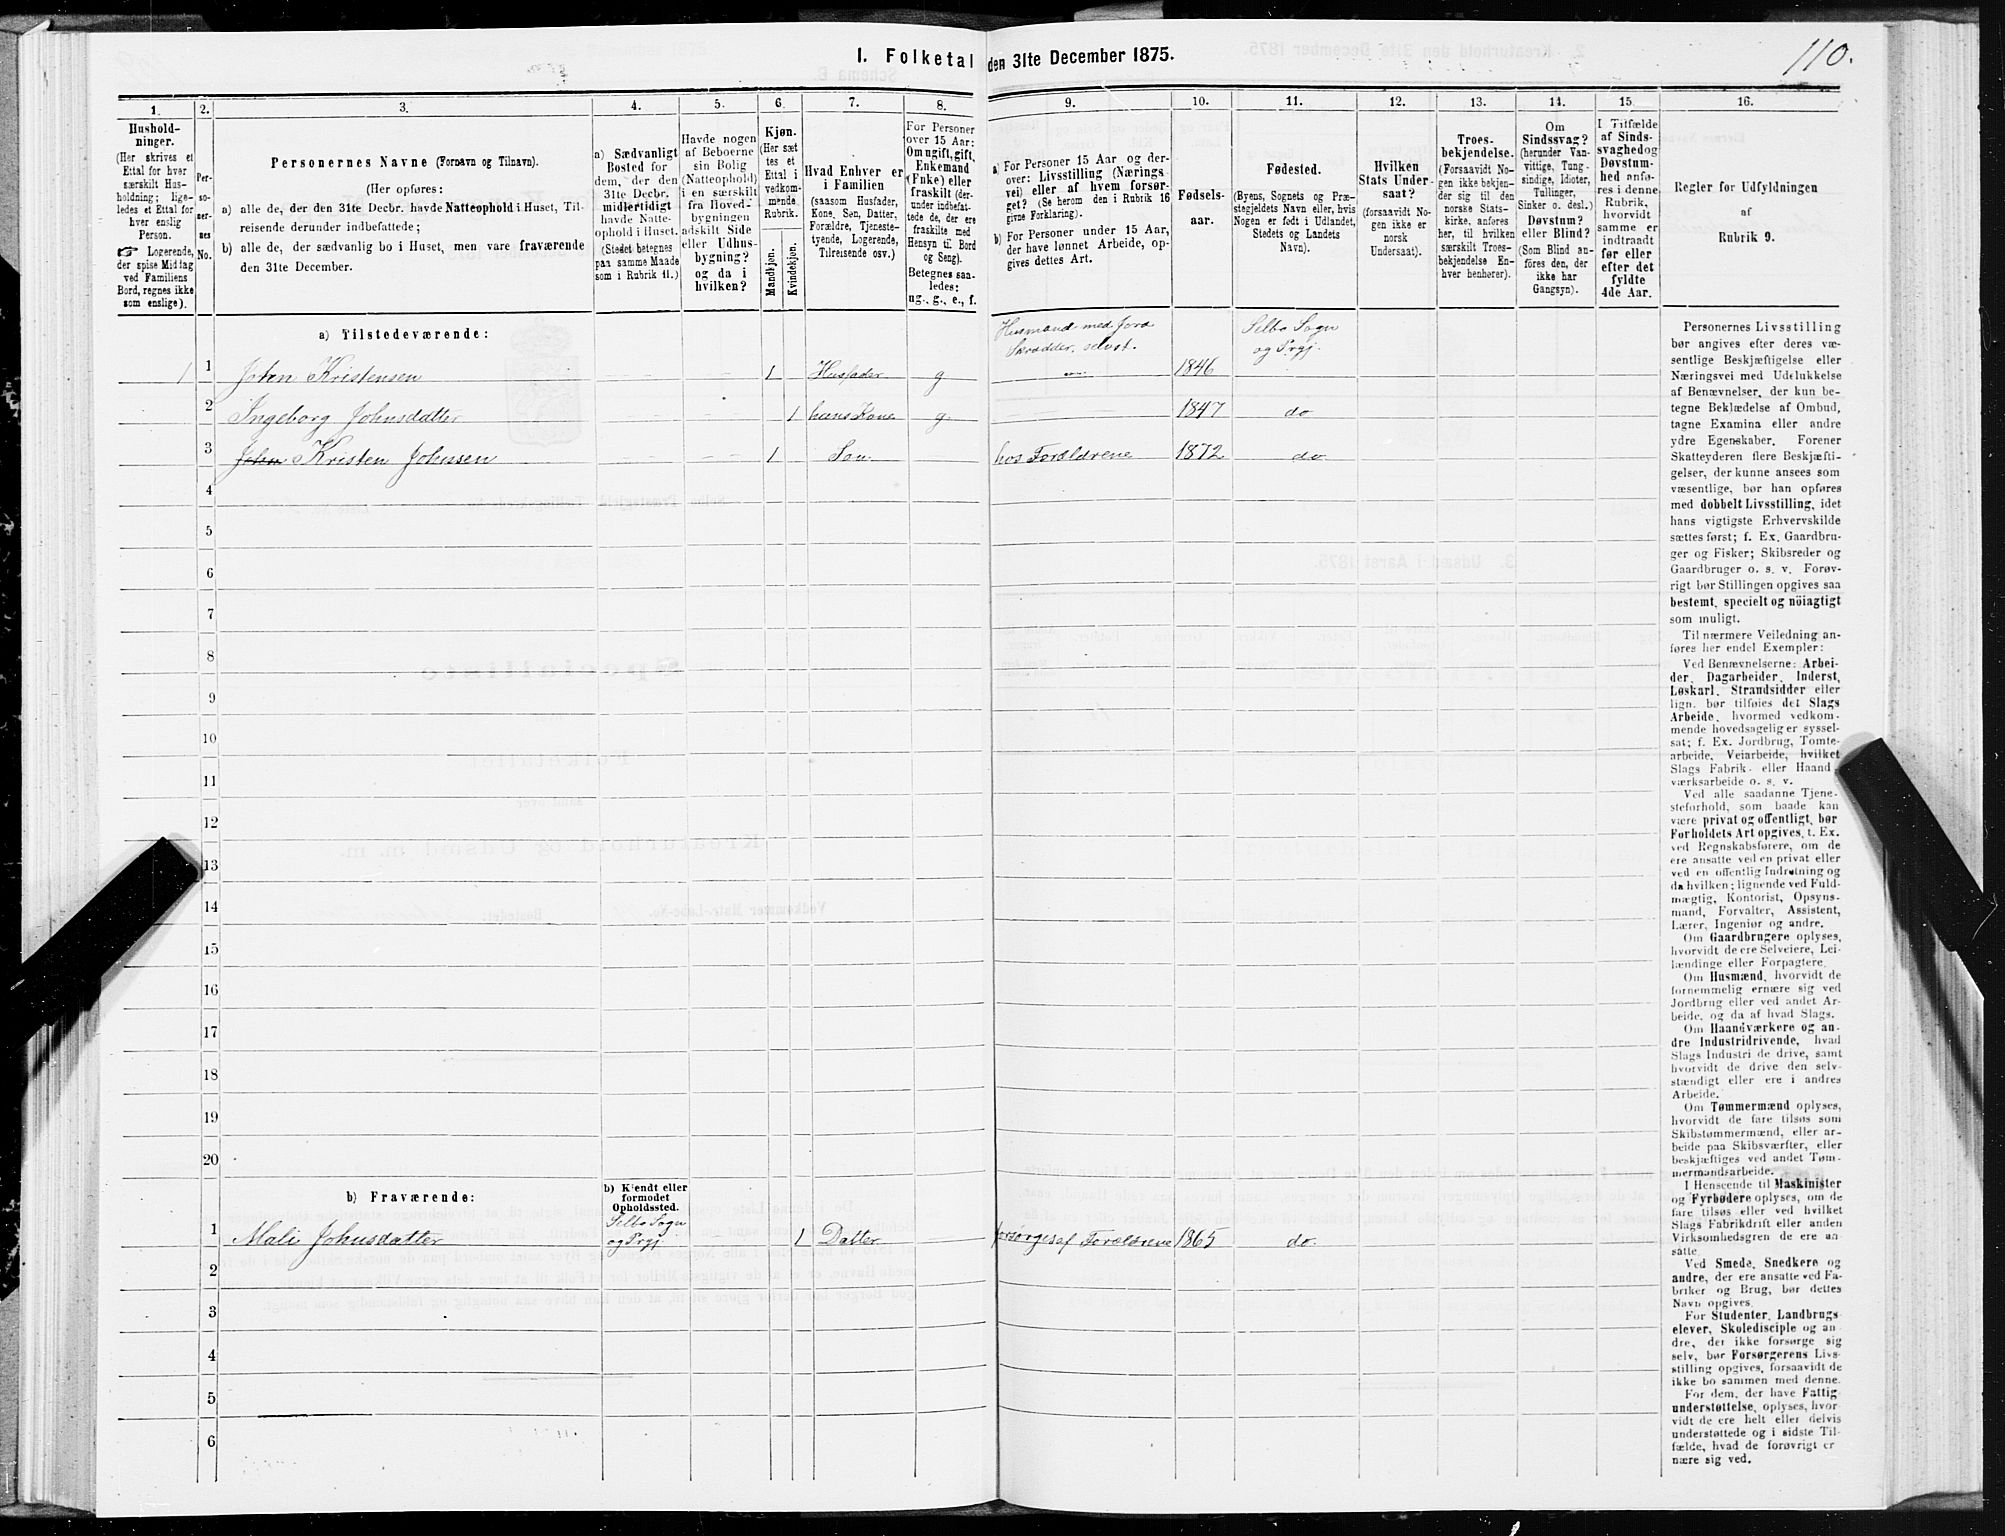 I. Folketal den 31te December 1875.
110.
1.
2.
3.
4.
5.
6.
7.
8.
9.
10.
11.
12.
13.
14.
15.
16.
Husholdninger.
(Her skrives et
Ettal for hver
særskilt Husholdning;
ligeledes et Ettal for
hver enslig
Person.
☞ Logerende,
der spise Middag
ved Familiens
Bord, regnes ikke
som enslige).
Personernes
No.
Personernes Navne (Fornavn og Tilnavn).
(Her opføres:
a) alle de, der den 31te Decbr. havde Natteophold i Huset, Tilreisende
derunder indbefattede;
b) alle de, der sædvanlig bo i Huset, men vare fraværende
den 31te December.
a) Sædvanligt
Bosted for
dem, der den
31te Decbr.
midlertidigt
havde Natteophold
i Huset.
(Stedet betegnes
paa samme Maade
som i Rubrik 11.)
Havde nogen
af Beboerne
sin Bolig
(Natteophold)
i en særskilt
fra Hovedbygningen
adskilt Side
eller Udhusbygning?
og da i
hvilken?
Kjøn.
(Her sættes
et
Ettal i
vedkommende
Rubrik.
Mandkjøn.
Kvindekjøn.
Hvad Enhver er
i Familien
(saasom Husfader,
Kone, Søn, Datter,
Forældre, Tjenestetyende,
Logerende,
Tilreisende osv.)
For Personer
over 15 Aar:
Om ugift, gift,
Enkemand
(Enke) eller
fraskilt (derunder
indbefattede
de, der ere
fraskilte med
Hensyn til Bord
og Seng).
Betegnes saaledes:
ug., g., e., f.
a) For Personer 15 Aar og derover:
Livsstilling (Næringsvei)
eller af hvem forsørget?
(Se herom den i Rubrik 16
givne Forklaring).
b) For Personer under 15 Aar,
der have lønnet Arbeide, opgives
dettes Art.
Fødselsaar.
Fødested.
(Byens, Sognets og Præstegjeldets
Navn eller, hvis
Nogen er født i Udlandet,
Stedets og Landets
Navn).
Hvilken
Stats Undersaat?
(forsaavidt Nogen
ikke er
norsk
Undersaat).
Troesbekjendelse.
(Forsaavidt Nogen
ikke bekjender
sig til den
norske Statskirke,
anføres
her, til hvilken
særskilt Troesbekjendelse
Enhver
henhører).
Om
Sindssvag?
(herunder Vanvittige,
Tungsindige,
Idioter,
Tullinger,
Sinker o. desl.)
Døvstum?
eller Blind?
(Som Blind anføres
den, der
ikke har
Gangsyn).
I Tilfælde
af Sindssvaghed og
Døvstumhed
anføres
i denne
Rubrik,
hvorvidt
samme er
indtraadt
før eller
efter det
fyldte
4de Aar.
Regler for Udfyldningen
af
Rubrik 9.
a) Tilstedeværende:
Husmand med Jord
Skrædder, selvst.
Selbo Sogn
og Prgj.
1 1 John Kristensen 1 Husfader g 1846
2 Ingeborg Johnsdatter 1 hans Kone g 1847 do
3 John Kristen Johnsen 1 Søn hos Forældrene 1872 do
4
5
6
7
8
9
10
11
12
13
14
15
16
17
18
19
20
b) Fraværende:
b) Kjendt eller
formodet
Opholdssted.
Selbo Sogn
og Prgj.
1 Mali Johnsdatter 1 Datter forsørges af Forældrene 1865 do.
2
3
4
5
6
Personernes Livsstilling
bør angives efter deres væsentlige
Beskjæftigelse eller
Næringsvei med Udelukkelse
af Benævnelser, der kun betegne
Beklædelse af Ombud,
tagne Examina eller andre
ydre Egenskaber. Forener
Skatteyderen flere Beskjæftigelser,
der kunne ansees som
væsentlige, bør han opføres
med dobbelt Livsstilling, idet
hans vigtigste Erhvervskilde
sættes først; f. Ex. Gaardbruger
og Fisker; Skibsreder og
Gaardbruger o. s. v. Forøvrigt
bør Stillingen opgives saa
bestemt, specielt og nöiagtigt
som muligt.
Til nærmere Veiledning anføres
her endel Exempler:
Ved Benævnelserne: Arbeider,
Dagarbeider, Inderst,
Løskarl, Strandsidder eller
lign. bør tilføies det Slags
Arbeide, hvormed vedkommende
hovedsagelig er sysselsat;
f. Ex. Jordbrug, Tomtearbeide,
Veiarbeide, hvilket
Slags Fabrik- eller Haandværksarbeide
o. s. v.
Ved alle saadanne Tjenesteforhold,
som baade kan
være privat og offentligt, bør
Forholdets Art opgives, t. Ex.
ved Regnskabsførere, om de
ere ansatte ved en privat eller
ved en offentlig Indretning og
da hvilken; lignende ved Fuldmægtig,
Kontorist, Opsynsmand,
Forvalter, Assistent,
Lærer, Ingeniør og andre.
Om Gaardbrugere oplyses,
hvorvidt de ere Selveiere, Leilændinge
eller Forpagtere.
Om Husmænd, hvorvidt de
fornemmelig ernære sig ved
Jordbrug eller ved andet Arbeide,
og da af hvad Slags.
Om Haandværkere og andre
Industridrivende, hvad
Slags Industri de drive, samt
hvorvidt de drive den selvstændigt
eller ere i andres
Arbeide.
Om Tømmermænd oplyses,
hvorvidt de fare tilsøs som
Skibstømmermænd, eller arbeide
paa Skibsværfter, eller
beskjæftiges ved andet Tømmermandsarbeide.
I Henseende til Maskinister
og Fyrbødere oplyses, om de
fare tilsøs eller ved hvilket
Slags Fabrikdrift eller anden
Virksomhedsgren de ere ansatte.
Ved Smede, Snedkere og
andre, der ere ansatte ved Fabriker
og Brug, bør dettes
Navn opgives.
For Studenter, Landbrugselever,
Skoledisciple og andre,
der ikke forsørge sig
selv, bør Forsørgerens Livsstilling
opgives, forsaavidt de
ikke bo sammen med denne.
For dem, der have Fattigunderstøttelse,
oplyses, hvorvidt
de ere helt eller delvis
understøttede og i sidste Tilfælde,
hvad de forøvrigt ernære
sig ved.